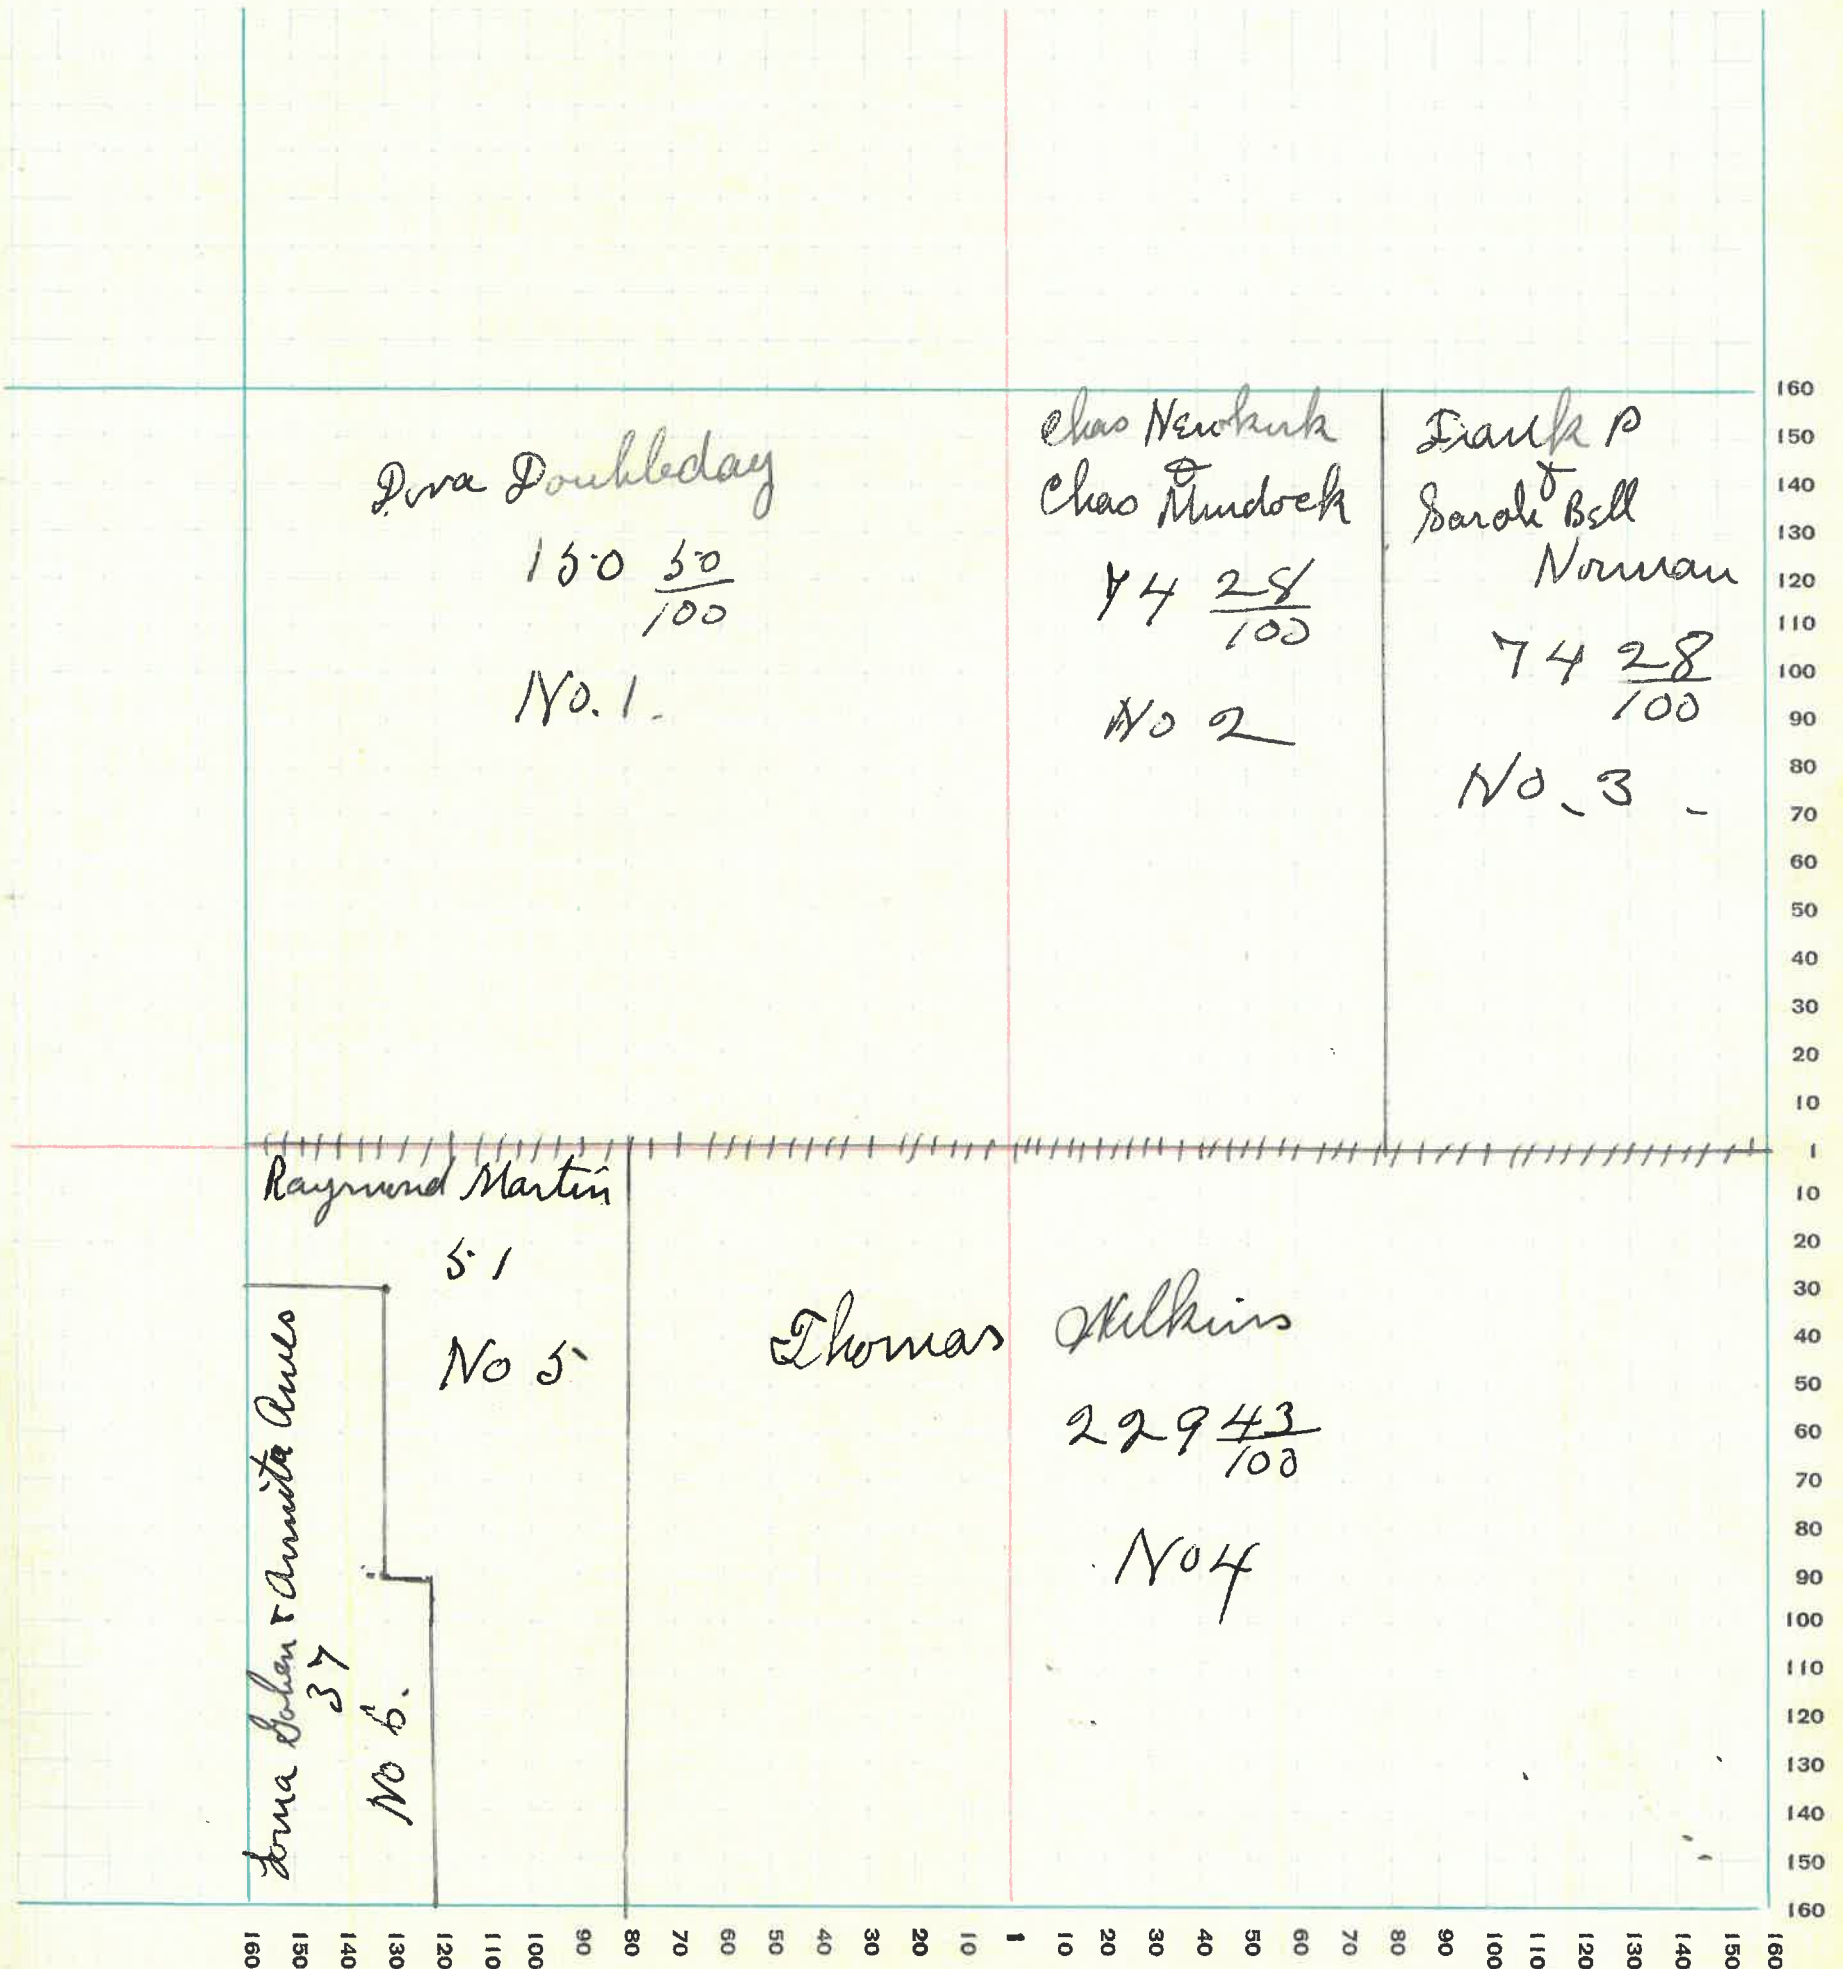 Doubleday
150 50/100
No. 1.
Chas Newkirk
&
Chas Murdock
74 28/100
No 2
Frank P
&
Sarah Bell
Norman
74 28/100
No. 3
160
150
140
130
120
110
100
90
80
70
60
50
40
30
20
10
1
10
20
30
40
50
60
70
80
90
100
110
120
130
140
150
160
Raymond Martin
51
No 5
Thomas Wilkins
229 43/100
No 4
& Annita Ames
37
No 6.
160 150 140 130 120 110 100 90 80 70 60 50 40 30 20 10 1 10 20 30 40 50 60 70 80 90 100 110 120 130 140 150 160